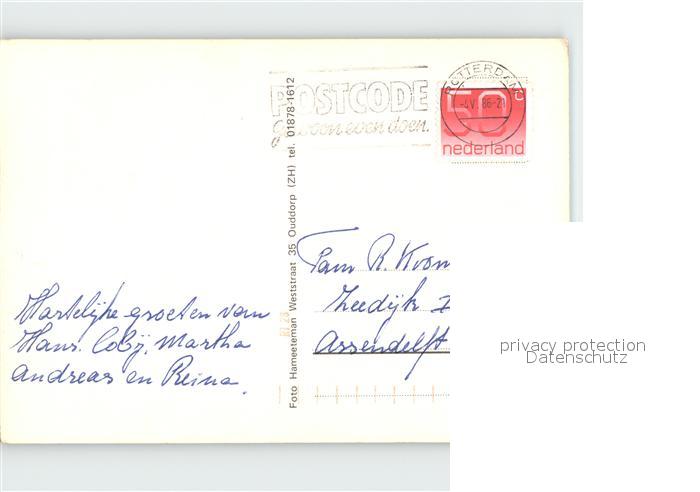 ROTTERDAM C
-4.V.86-21
POSTCODE
gewoon even doen.
50
nederland
Foto Hameeteman Weststraat 35 Ouddorp (ZH) tel. 01878-1612
Fam R. Koon
Zeedijk
Assendelft
Hartelijke groeten van
Hans. Coby, Martha
Andreas en Reina.
privacy protection
Datenschutz